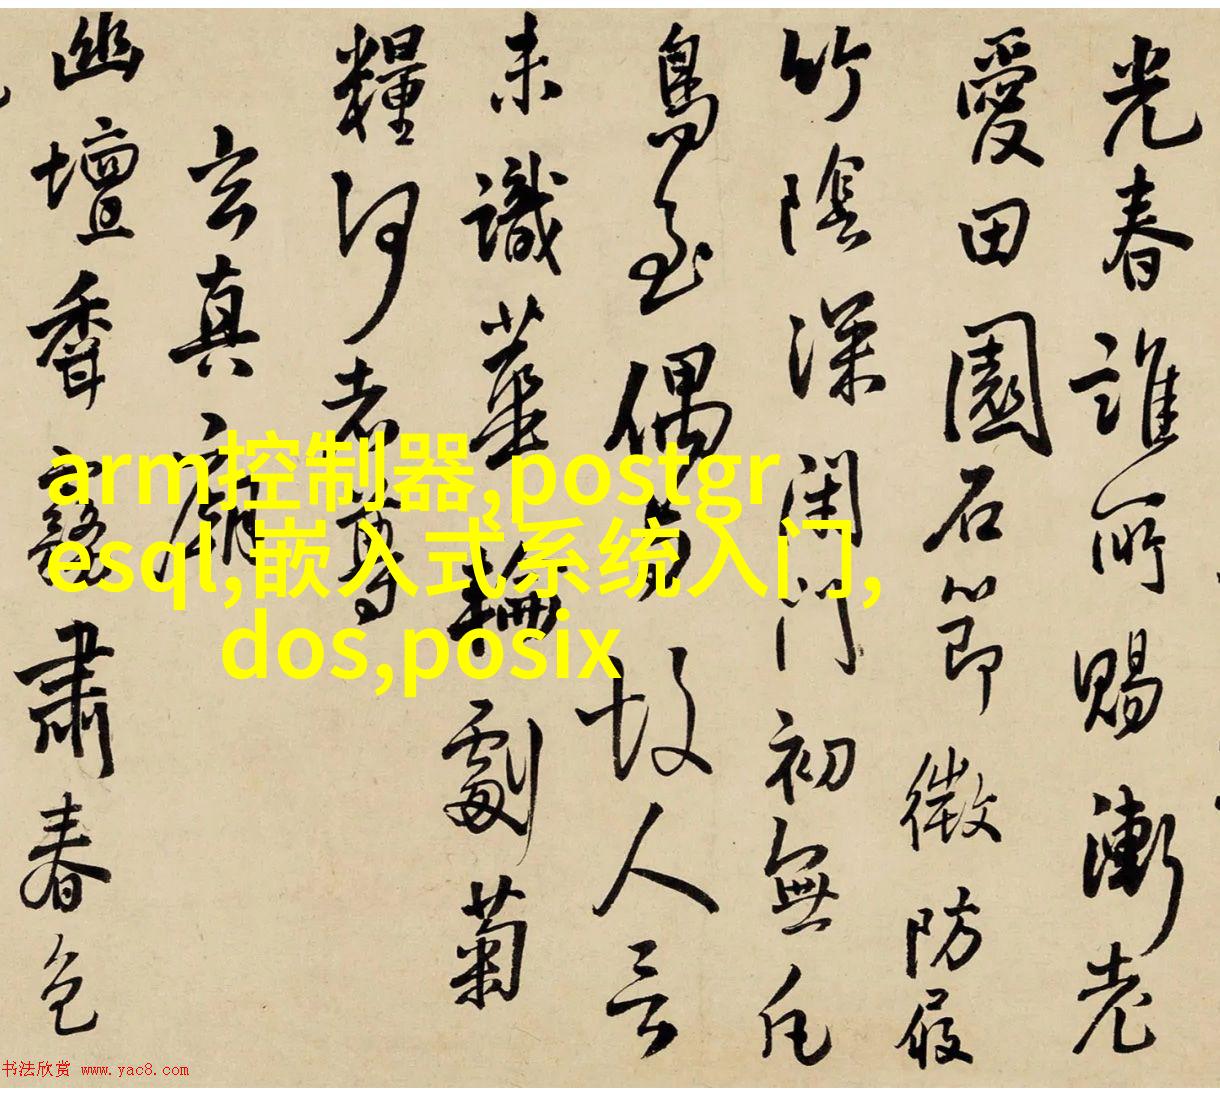 光春誰所賜漸老
愛田園石節微防屐
竹陰深閑門初無尨
鳥至偶有故人言
未識華輪劇菊
糧何老尊
玄真廟
幽壇香翏肅春色
arm控制器,postgr
esql,嵌入式系统入门,
dos,posix
书法欣赏 www.yac8.com